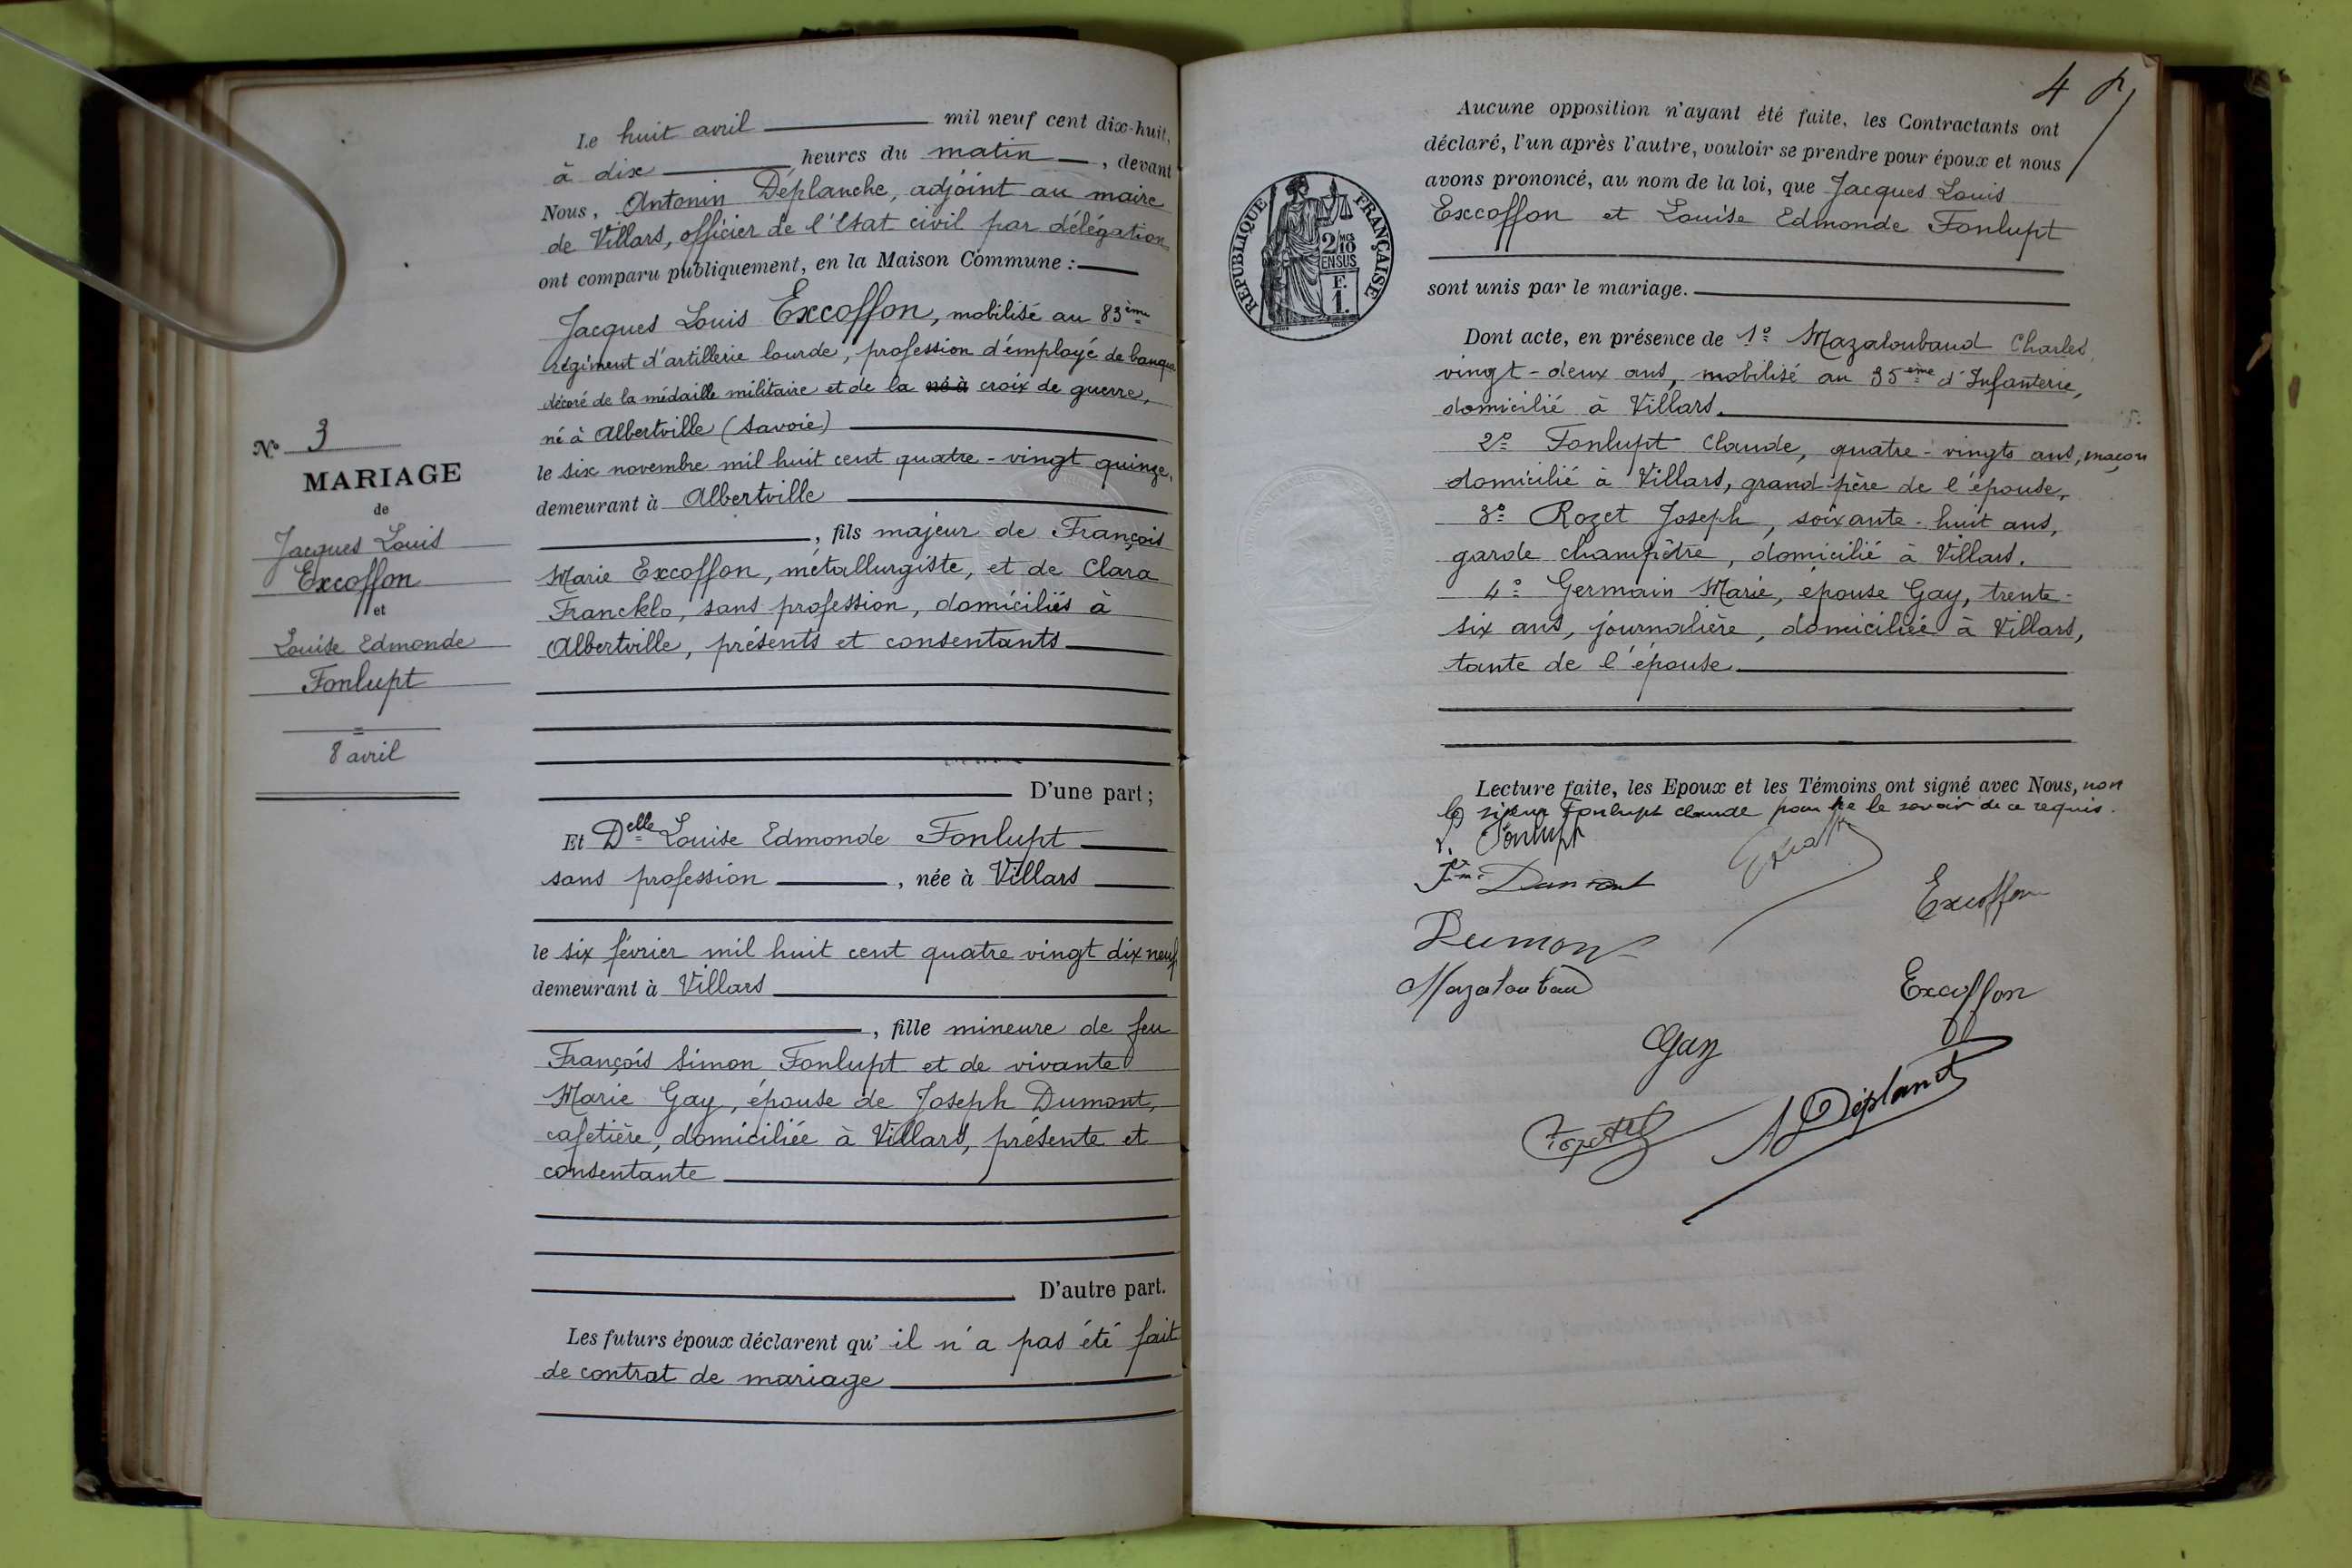 Le huit avril mil neuf cent dix-huit,
à dix heures du matin, devant
Nous, Antonin Déplanche, adjoint au maire
de Villars, officier de l'Etat civil par délégation
ont comparu publiquement, en la Maison Commune :
Jacques Louis Excoffon, mobilisé au 83ème
régiment d'artillerie lourde, profession d'employé de banque
décoré de la médaille militaire et de la né à croix de guerre,
né à Albertville (Savoie)
le six novembre mil huit cent quatre-vingt quinze,
demeurant à Albertville
, fils majeur de François
Marie Excoffon, métallurgiste, et de Clara
Francklo, sans profession, domiciliés à
Albertville, présents et consentants
D'une part ;
Et Delle Louise Edmonde Fonlupt
sans profession, née à Villars
le six février mil huit cent quatre vingt dix neuf
demeurant à Villars
, fille mineure de feu
François Simon Fonlupt et de vivante
Marie Gay, épouse de Joseph Dumont,
cafetière, domiciliée à Villars, présente et
consentante
D'autre part.
Les futurs époux déclarent qu'il n'a pas été fait
de contrat de mariage
N° 3
MARIAGE
de
Jacques Louis
Excoffon
et
Louise Edmonde
Fonlupt
8 avril
4
Aucune opposition n'ayant été faite, les Contractants ont
déclaré, l'un après l'autre, vouloir se prendre pour époux et nous
avons prononcé, au nom de la loi, que Jacques Louis
Excoffon et Louise Edmonde Fonlupt
sont unis par le mariage.
Dont acte, en présence de 1° Mazaloubaud Charles,
vingt-deux ans, mobilisé au 35ème d'Infanterie,
domicilié à Villars.
2° Fonlupt Claude, quatre-vingts ans, maçon
domicilié à Villars, grand-père de l'épouse,
3° Rozet Joseph, soixante-huit ans,
garde champêtre, domicilié à Villars.
4° Germain Marie, épouse Gay, trente-
six ans, journalière, domiciliée à Villars,
tante de l'épouse
Lecture faite, les Epoux et les Témoins ont signé avec Nous, non
le sieur Fonlupt Claude pour ne le savoir de ce requis.
L. Fonlupt
Dumont
Excoffon
Dumont
Mazaloubau
Excoffon
Gay
A Déplanch
REPUBLIQUE FRANÇAISE
2/10 MES
EN SUS
F.
1.